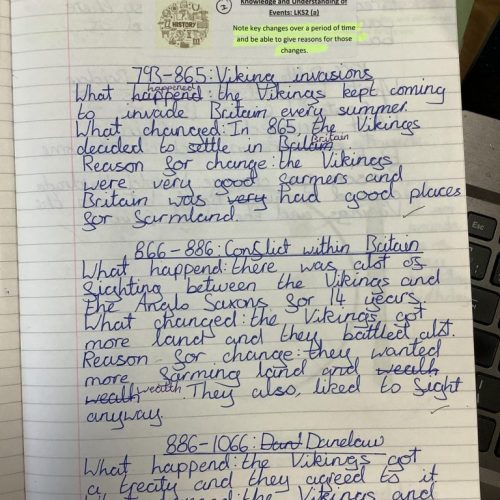 Knowledge and Understanding of
Events: LKS2 (a)
Note key changes over a period of time
and be able to give reasons for those
changes.
HISTORY
2
793-865: Viking invasions
happened
What happend: the Vikings kept coming
to invade Britain every summer.
What changed: In 865, the Vikings
Britain
decided to settle in Britain
Reason for change: the Vikings
were very good farmers and
Britain was very had good places
for farmland.
866-886: Conflict within Britain
What happend: there was alot of
fighting between the Vikings and
the Anglo Saxons for 14 years.
What changed: the Vikings got
more land and they battled alot.
Reason for change: they wanted
more farming land and wealth
wealth wealth. They also, liked to fight
anyway.
886-1066: Danelaw
What happend: the Vikings got
a treaty and they agreed to it
the Vikings and